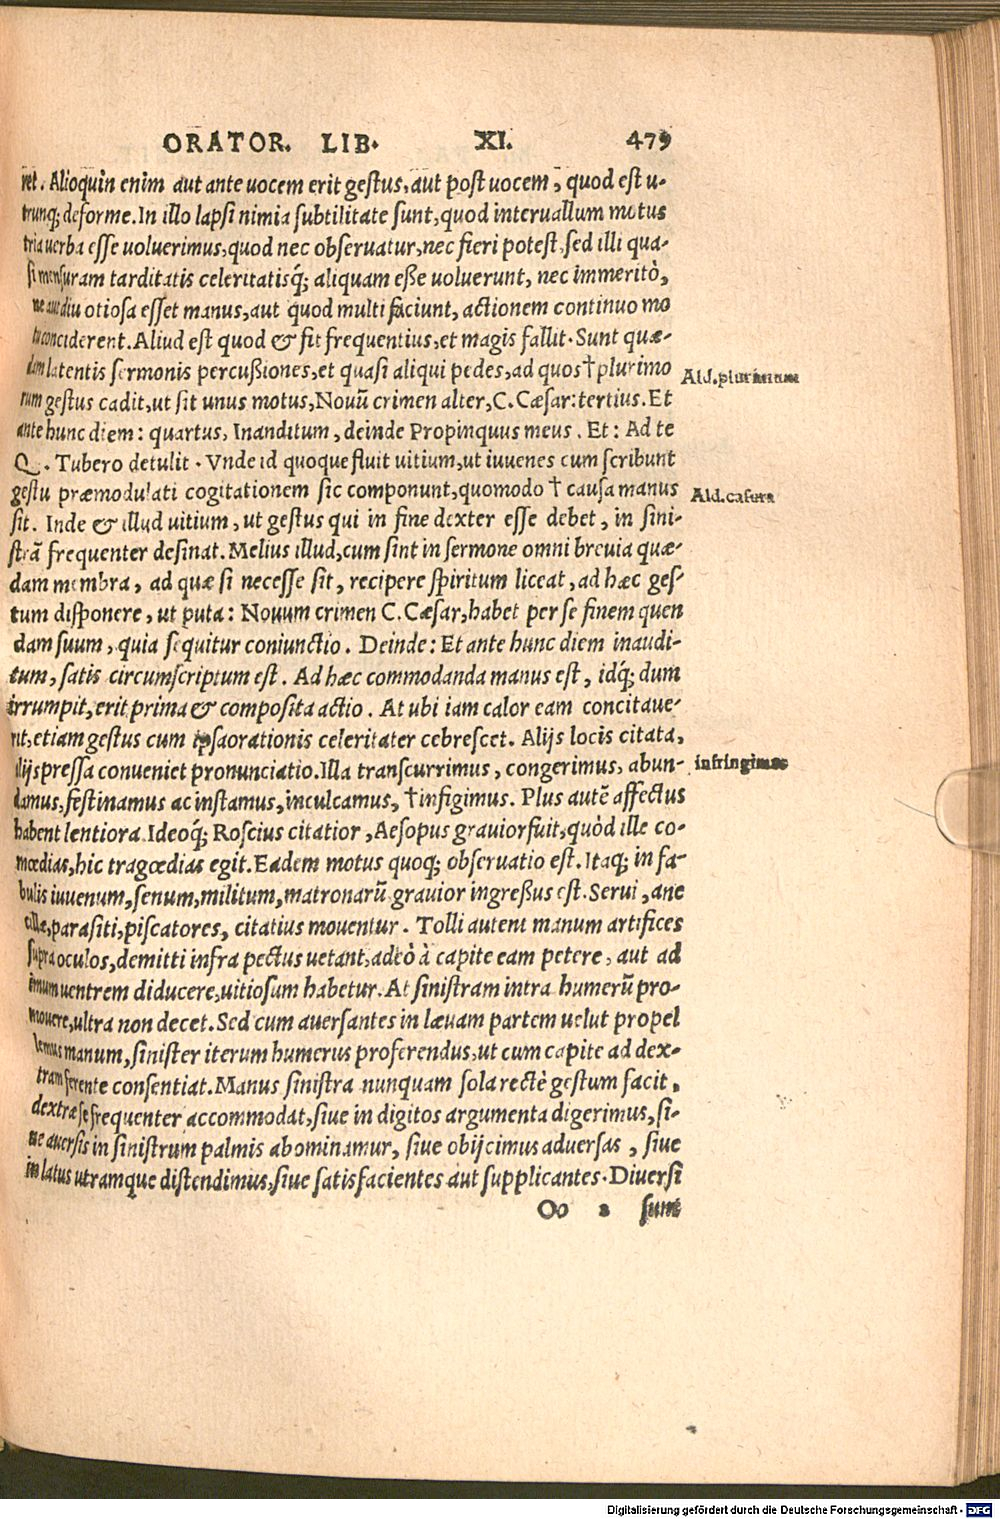 ORATOR. LIB. XI. 479
ret. Alioquin enim aut ante uocem erit gestus, aut post uocem, quod est u-
trunq; deforme. In illo lapsi nimia subtilitate sunt, quod interuallum motus
tria uerba esse uoluerimus, quod nec obseruatur, nec fieri potest, sed illi qua-
si mensuram tarditatis celeritatisq́; aliquam esse uoluerunt, nec immeritò,
ne aut diu otiosa esset manus, aut quod multi faciunt, actionem continuo mo
tu conciderent. Aliud est quod & fit frequentius, et magis fallit. Sunt quæ-
dam latentis sermonis percussiones, et quasi aliqui pedes, ad quos † plurimo
Ald. plurimum
rum gestus cadit, ut sit unus motus, Nouũ crimen alter, C. Cæsar: tertius. Et
ante hunc diem: quartus, Inanditum, deinde Propinquus meus. Et: Ad te
Q. Tubero detulit. Vnde id quoque fluit uitium, ut iuuenes cum scribunt
gestu præmodulati cogitationem sic componunt, quomodo † causa manus
Ald. casura
sit. Inde & illud uitium, ut gestus qui in fine dexter esse debet, in sini-
strã frequenter desinat. Melius illud, cum sint in sermone omni breuia quæ-
dam membra, ad quæ si necesse sit, recipere spiritum liceat, ad hæc ges-
tum disponere, ut puta: Nouum crimen C. Cæsar, habet per se finem quen
dam suum, quia sequitur coniunctio. Deinde: Et ante hunc diem inaudi-
tum, satis circumscriptum est. Ad hæc commodanda manus est, idq́; dum
irrumpit, erit prima & composita actio. At ubi iam calor eam concitaue-
rit, etiam gestus cum ipsa orationis celeritater cebrescet. Alijs locis citata,
alijs pressa conueniet pronunciatio. Illa transcurrimus, congerimus, abun-
infringimus
damus, festinamus ac instamus, inculcamus, † infigimus. Plus autẽ affectus
habent lentiora. Ideoq́; Roscius citatior, Aesopus grauior fuit, quòd ille co-
mœdias, hic tragœdias egit. Eadem motus quoq; obseruatio est. Itaq; in fa-
bulis iuuenum, senum, militum, matronarũ grauior ingressus est. Serui, anc
cillæ, parasiti, piscatores, citatius mouentur. Tolli autem manum artifices
supra oculos, demitti infra pectus uetant, adeò à capite eam petere, aut ad
imum uentrem diducere, uitiosum habetur. At sinistram intra humerũ pro-
mouere, ultra non decet. Sed cum auersantes in læuam partem uelut propel
lemus manum, sinister iterum humerus proferendus, ut cum capite ad dex-
tram ferente consentiat. Manus sinistra nunquam sola rectè gestum facit,
dextræ se frequenter accommodat, siue in digitos argumenta digerimus, si-
ue auersis in sinistrum palmis abominamur, siue obijcimus aduersas, siue
in latus utramque distendimus, siue satisfacientes aut supplicantes. Diuersi
Oo 2 sunt
Digitalisierung gefördert durch die Deutsche Forschungsgemeinschaft - DFG